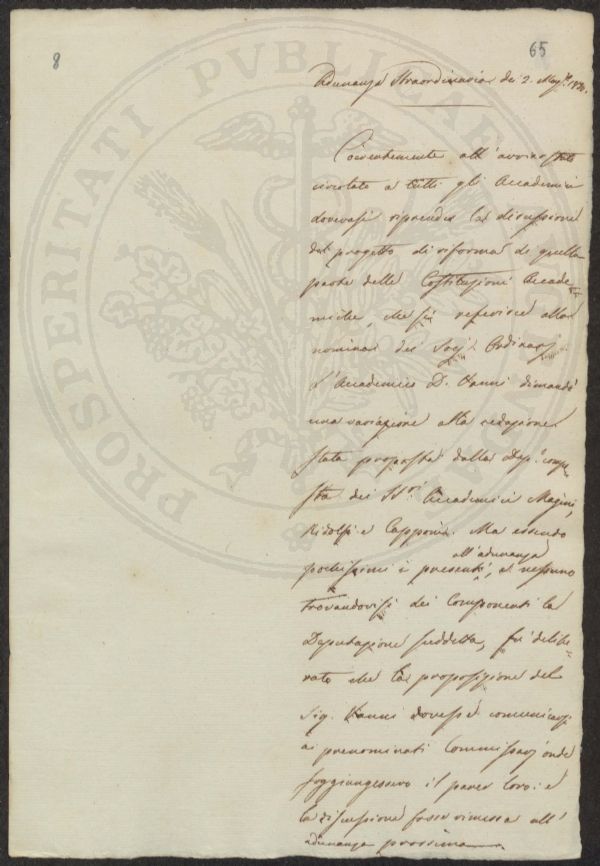 8
65
Adunanza Straordinaria de' 2. Mag.º 1830.
Coerentemente all'avviso stato
circolato a tutti gli Accademici
dovevasi riprender la discussione
del progetto di riforma di quella
parte delle Costituzioni Accade-
miche, che si referisce alla
nomina dei Socj Ordinarj
L'Accademico D. Vanni dimandò
una variazione alla redazione
stata proposta dalla Dep.e compo-
sta dei SSri. Accademici Magini,
Ridolfi e Capponi. Ma essendo
all'adunanza
pochissimi i presenti, e nessuno
trovandovisi dei Componenti la
Deputazione suddetta, fu delibe-
rato che la proposizione del
Sig. Vanni dovesse comunicarsi
ai prenominati Commissarj onde
soggiungessero il parer loro: e
la discussione fosse rimessa all'
adunanza prossima
PROSPERITATI PVBLICAE